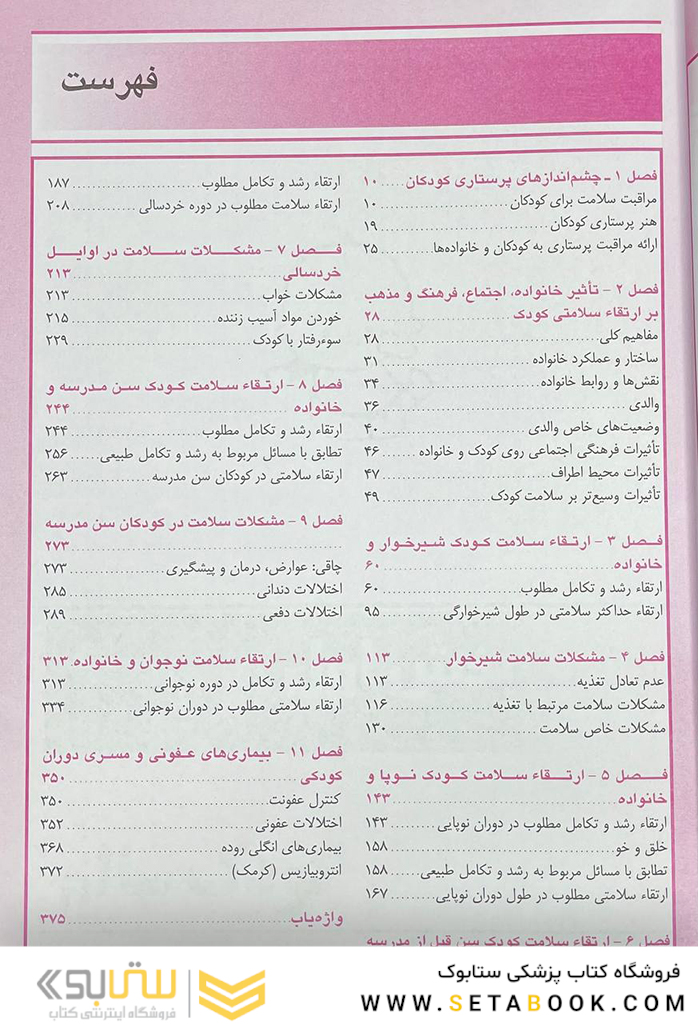 فهرست
فصل ۱ ـ چشم‌اندازهای پرستاری کودکان ..... ۱۰
مراقبت سلامت برای کودکان ..... ۱۰
هنر پرستاری کودکان ..... ۱۹
ارائه مراقبت پرستاری به کودکان و خانواده‌ها ..... ۲۵
فصل ۲ - تأثیر خانواده، اجتماع، فرهنگ و مذهب
بر ارتقاء سلامتی کودک ..... ۲۸
مفاهیم کلی ..... ۲۸
ساختار و عملکرد خانواده ..... ۳۱
نقش‌ها و روابط خانواده ..... ۳۴
والدی ..... ۳۶
وضعیت‌های خاص والدی ..... ۴۰
تأثیرات فرهنگی اجتماعی روی کودک و خانواده ..... ۴۶
تأثیرات محیط اطراف ..... ۴۷
تأثیرات وسیع‌تر بر سلامت کودک ..... ۴۹
فصل ۳ - ارتقاء سلامت کودک شیرخوار و
خانواده ..... ۶۰
ارتقاء رشد و تکامل مطلوب ..... ۶۰
ارتقاء حداکثر سلامتی در طول شیرخوارگی ..... ۹۵
فصل ۴ - مشکلات سلامت شیرخوار ..... ۱۱۳
عدم تعادل تغذیه ..... ۱۱۳
مشکلات سلامت مرتبط با تغذیه ..... ۱۱۶
مشکلات خاص سلامت ..... ۱۳۰
فصل ۵ - ارتقاء سلامت کودک نوپا و
خانواده ..... ۱۴۳
ارتقاء رشد و تکامل مطلوب در دوران نوپایی ..... ۱۴۳
خلق و خو ..... ۱۵۸
تطابق با مسائل مربوط به رشد و تکامل طبیعی ..... ۱۵۸
ارتقاء سلامتی مطلوب در طول دوران نوپایی ..... ۱۶۷
فصل ۶ - ارتقاء سلامت کودک سن قبل از مدرسه
ارتقاء رشد و تکامل مطلوب ..... ۱۸۷
ارتقاء سلامت مطلوب در دوره خردسالی ..... ۲۰۸
فصل ۷ - مشکلات سلامت در اوایل
خردسالی ..... ۲۱۳
مشکلات خواب ..... ۲۱۳
خوردن مواد آسیب زننده ..... ۲۱۵
سوءرفتار با کودک ..... ۲۲۹
فصل ۸ - ارتقاء سلامت کودک سن مدرسه و
خانواده ..... ۲۴۴
ارتقاء رشد و تکامل مطلوب ..... ۲۴۴
تطابق با مسائل مربوط به رشد و تکامل طبیعی ..... ۲۵۶
ارتقاء سلامتی در کودکان سن مدرسه ..... ۲۶۳
فصل ۹ - مشکلات سلامت در کودکان سن مدرسه
..... ۲۷۳
چاقی: عوارض، درمان و پیشگیری ..... ۲۷۳
اختلالات دندانی ..... ۲۸۵
اختلالات دفعی ..... ۲۸۹
فصل ۱۰ - ارتقاء سلامت نوجوان و خانواده . ۳۱۳
ارتقاء رشد و تکامل در دوره نوجوانی ..... ۳۱۳
ارتقاء سلامتی مطلوب در دوران نوجوانی ..... ۳۳۴
فصل ۱۱ - بیماری‌های عفونی و مسری دوران
کودکی ..... ۳۵۰
کنترل عفونت ..... ۳۵۰
اختلالات عفونی ..... ۳۵۲
بیماری‌های انگلی روده ..... ۳۶۸
انتروبیازیس (کرمک) ..... ۳۷۲
واژه‌یاب ..... ۳۷۵
فروشگاه کتاب پزشکی ستابوک
WWW.SETABOOK.COM
ستابوک
فروشگاه اینترنتی کتاب